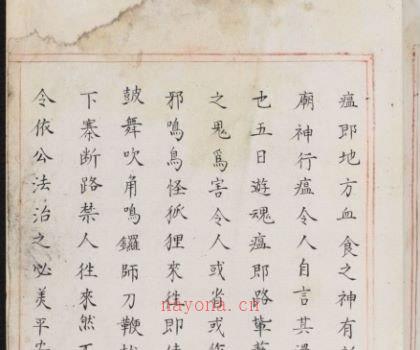 瘟即地方血食之神有
廟神行瘟令人自言其
也五日遊魂瘟即路
之鬼爲害令人或省或
邪鳴鳥怪狐狸來往即
鼓舞吹角鳴鑼師刀鞭
下寨断路禁人往來然
令依公法治之必美平安
nayona.cn